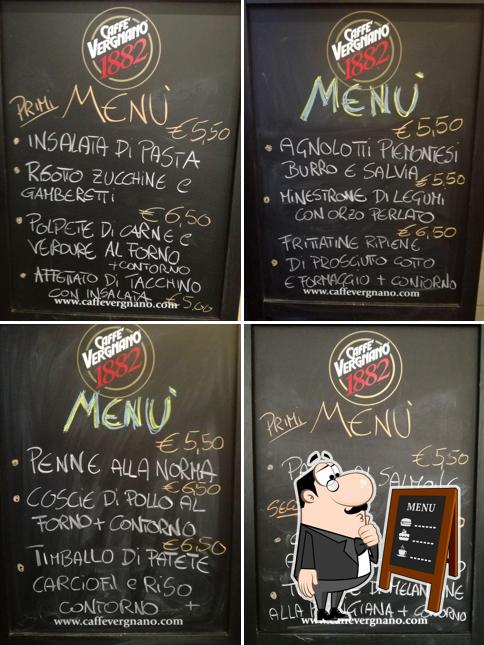 CAFFÈ
VERGNANO
1882
PRIMI MENÙ
€5,50
INSALATA DI PASTA
RISOTTO ZUCCHINE E
GAMBERETTI
€6,50
POLPETE DI CARNE E
VERDURE AL FORNO
+ CONTORNO
AFFETTATO DI TACCHINO
CON INSALATA €5,00
www.caffevergnano.com
CAFFÈ
VERGNANO
1882
MENÙ
€5,50
AGNOLOTTI PIEMONTESI
BURRO E SALVIA
€5,50
MINESTRONE DI LEGUMI
CON ORZO PERLATO
€6,50
FRITTATINE RIPIENE
DI PROSCIUTO COTTO
E FORMAGGIO + CONTORNO
www.caffevergnano.com
CAFFÈ
VERGNANO
1882
MENÙ
€5,50
PENNE ALLA NORMA
€6,50
COSCIE DI POLLO AL
FORNO + CONTORNO
€6,50
TIMBALLO DI PATETE
CARCIOFI E RISO
CONTORNO +
www.caffevergnano.com
CAFFÈ
VERGNANO
1882
PRIMI MENÙ
€5,50
MENU
DI MELANZANE
ALLA + CONTORNO